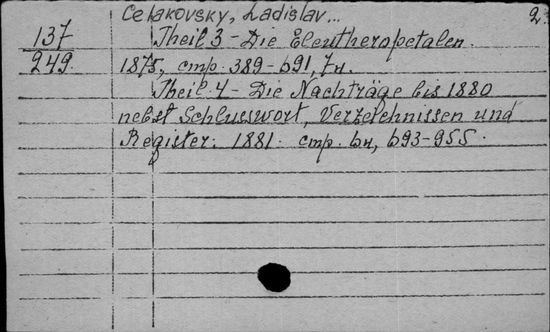 Čelakovsky, Ladislav... 2.
137 Theil 3 - Die Eleutheropetalen.
249. 1875, стр. 389-691, 7н.
Theil 4 - Die Nachträge bis 1880
nebst Schlusswort, Verzeichnissen und
Register. 1881. стр. 6н, 693-955.